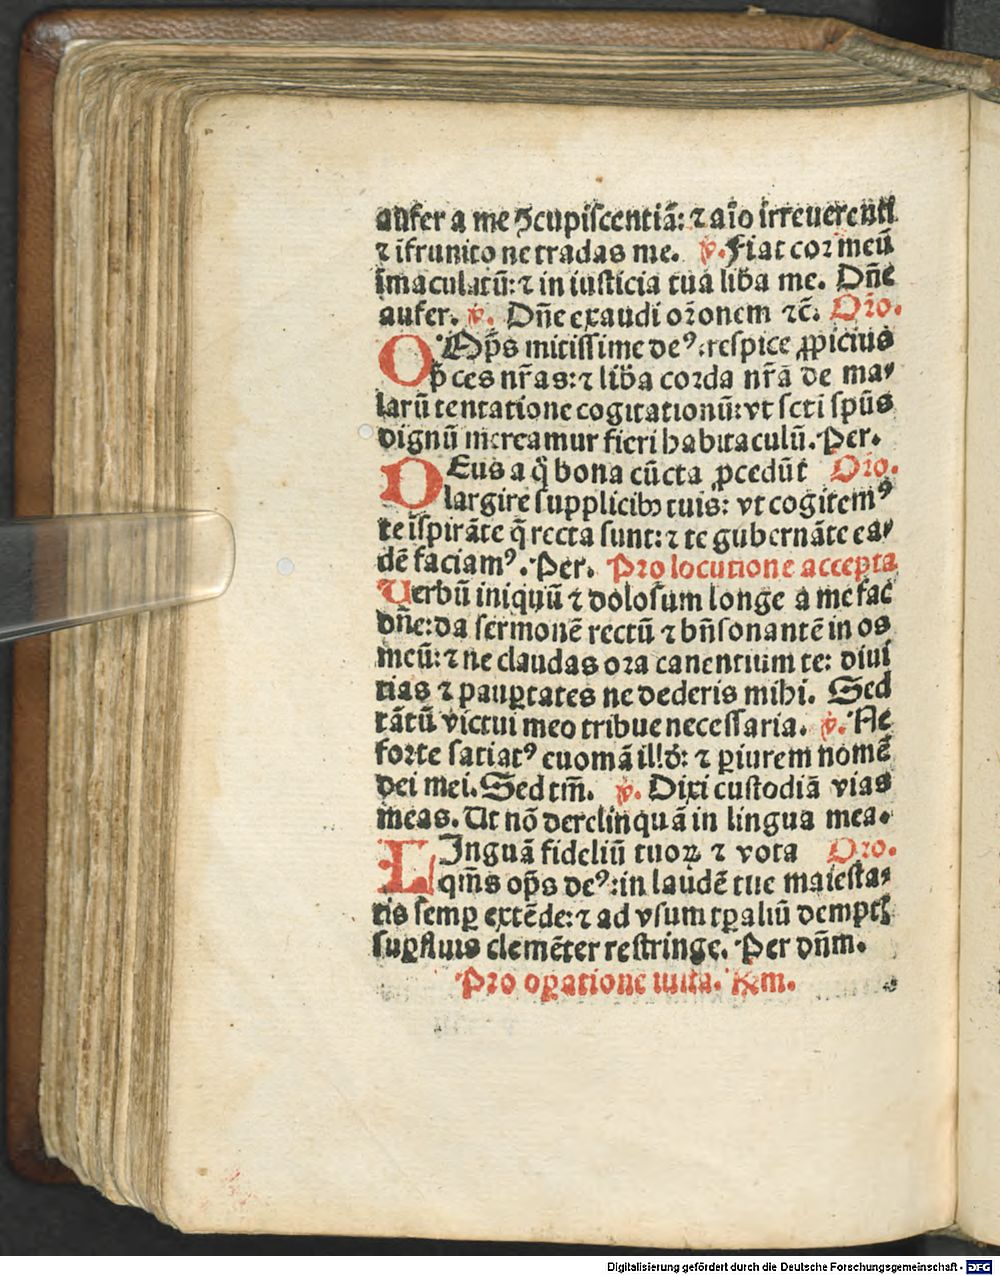 aufer a me ꝯcupiſcentiã: ⁊ aĩo irreuerenti
⁊ ĩfrunito ne tradas me. ℣. Fiat cor meũ
ĩmaculatũ: ⁊ in iuſticia tua liƀa me. Dñe
aufer. ℣. Dñe exaudi oꝛonem ⁊c̃. Oꝛ̃o.
OMp̃s mitiſſime deꝰ: reſpice ꝓpicius
p̃ces nr̃as: ⁊ liƀa coꝛda nr̃ã de ma⸗
larũ tentatione cogitationũ: vt ſcti ſpũs
dignũ mereamur fieri habitaculũ. Per.
DEus a q̃ bona cũcta ꝓcedũt Oꝛ̃o.
largire ſupplicibꝫ tuis: vt cogitemꝰ
te ĩſpirãte q̃ recta ſunt: ⁊ te gubernãte ea⸗
dẽ faciamꝰ. Per. Pro locutione accepta
Verbũ iniquũ ⁊ doloſum longe a me fac
dñe: da ſermonẽ rectũ ⁊ bñſonantẽ in os
meũ: ⁊ ne claudas oꝛa canentium te: diui
tias ⁊ pauꝑtates ne dederis mihi. Sed
tãtũ victui meo tribue neceſſaria. ℣. Ne
foꝛte ſatiatꝰ euomã illd̛: ⁊ ꝑiurem nomẽ
dei mei. Sed tm̃. ℣. Dixi cuſtodiã vias
meas. Ut nõ derelinquã in lingua mea.
LInguã fideliũ tuoꝝ ⁊ vota Oꝛ̃o.
qm̃s op̃s deꝰ: in laudẽ tue maieſta⸗
tis ſemꝑ extẽde: ⁊ ad vſum tꝑaliũ dempt̃
ſuꝑfluis clemẽter reſtringe. Per dñm.
Pro oꝑatione iuſta. R̃m.
Digitalisierung gefördert durch die Deutsche Forschungsgemeinschaft - DFG